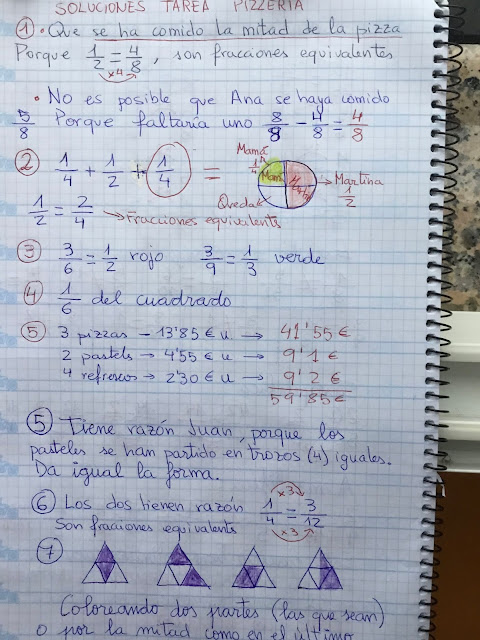 SOLUCIONES TAREA PIZZERIA
① • Que se ha comido la mitad de la pizza
Porque 1/2 = 4/8, son fracciones equivalentes
x4
• No es posible que Ana se haya comido
5/8 Porque faltaría uno 8/8 - 4/8 = 4/8
② 1/4 + 1/2 + 1/4 =
Mamá
1/4
Mamá
Martina
1/2
Queda
1/2 = 2/4 → Fracciones equivalents
③ 3/6 = 1/2 rojo 3/9 = 1/3 verde
④ 1/6 del cuadrado
⑤ 3 pizzas - 13'85 € u. → 41'55 €
2 pastels → 4'55 € u → 9'1 €
4 refrescos → 2'30 € u → 9'2 €
59'85 €
⑤ Tiene razón Juan, porque los
pasteles se han partido en trozos (4) iguales.
Da igual la forma.
⑥ Los dos tienen razón 1/4 = 3/12
x3
x3
Son fracciones equivalents
⑦
Coloreando dos partes (las que sean)
o por la mitad como en el último